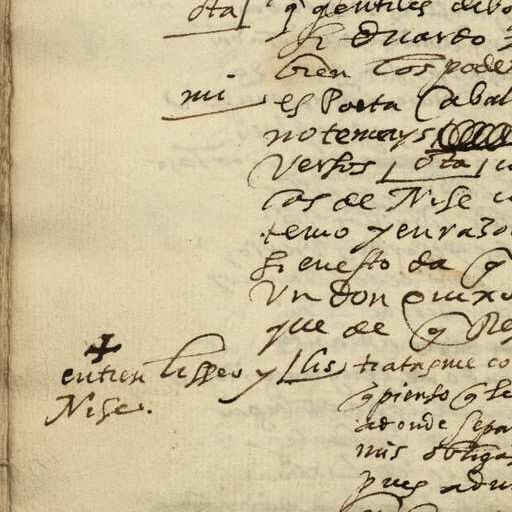 ota q gentiles divo
si duardo
bien los pode
mi es Poeta Cabal
no temays
versos ota
cos de Nise
temo y en razo
si en esto da q
Un don quixo
que de q Re
entien lisseo y lis tratasme co
Nise. q pienso q se
adonde sepa
mis obliga
pues adu